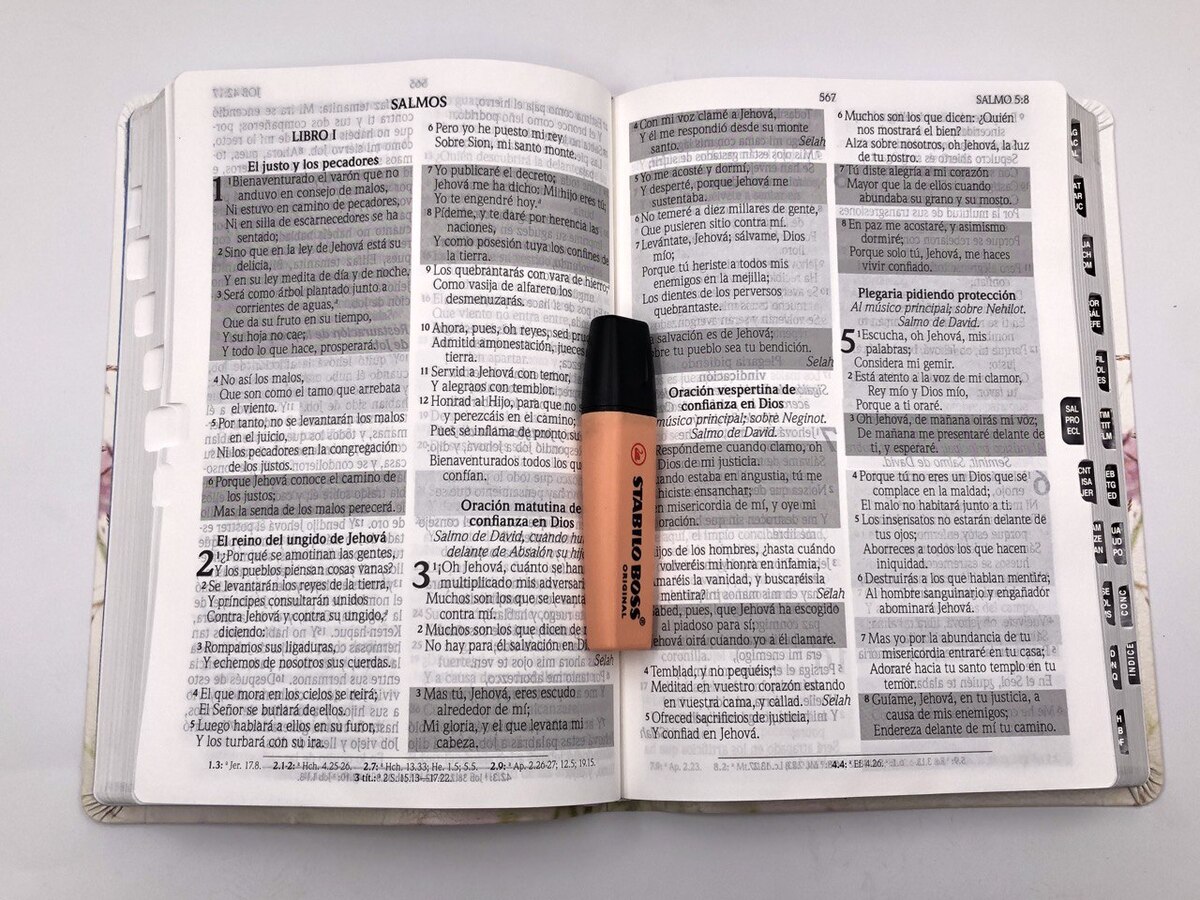 SALMOS
LIBRO I
El justo y los pecadores
1 ¹Bienaventurado el varón que no
anduvo en consejo de malos,
Ni estuvo en camino de pecadores,
Ni en silla de escarnecedores se ha
sentado;
2 Sino que en la ley de Jehová está su
delicia,
Y en su ley medita de día y de noche.
3 Será como árbol plantado junto a
corrientes de aguas,ª
Que da su fruto en su tiempo,
Y su hoja no cae;
Y todo lo que hace, prosperará.
4 No así los malos,
Que son como el tamo que arrebata
el viento.
5 Por tanto, no se levantarán los malos
en el juicio,
Ni los pecadores en la congregación
de los justos.
6 Porque Jehová conoce el camino de
los justos;
Mas la senda de los malos perecerá.
El reino del ungido de Jehová
2 ¹¿Por qué se amotinan las gentes,
Y los pueblos piensan cosas vanas?
2 Se levantarán los reyes de la tierra,
Y príncipes consultarán unidos
Contra Jehová y contra su ungido,ª
diciendo:
3 Rompamos sus ligaduras,
Y echemos de nosotros sus cuerdas.
4 El que mora en los cielos se reirá;
El Señor se burlará de ellos.
5 Luego hablará a ellos en su furor,
Y los turbará con su ira.
6 Pero yo he puesto mi rey
Sobre Sion, mi santo monte.
7 Yo publicaré el decreto;
Jehová me ha dicho: Mi hijo eres tú;
Yo te engendré hoy.ª
8 Pídeme, y te daré por herencia las
naciones,
Y como posesión tuya los confines de
la tierra.
9 Los quebrantarás con vara de hierro;
Como vasija de alfarero los
desmenuzarás.
10 Ahora, pues, oh reyes, sed
Admitid amonestación, jueces
tierra.
11 Servid a Jehová con temor,
Y alegraos con temblor.
12 Honrad al Hijo, para que no se
y perezcáis en el camino;
Pues se inflama de pronto su
Bienaventurados todos los que
confían.
Oración matutina de
confianza en Dios
Salmo de David, cuando
delante de Absalón su hijo
3 ¹¡Oh Jehová, cuánto se han
multiplicado mis adversarios
Muchos son los que se levantan
contra mí.
2 Muchos son los que dicen de
No hay para él salvación en
Selah
3 Mas tú, Jehová, eres escudo
alrededor de mí;
Mi gloria, y el que levanta mi
cabeza.
1.3: ª Jer. 17.8. 2.1-2: ª Hch. 4.25-26. 2.7: ª Hch. 13.33; He. 1.5; 5.5. 2.9: ª Ap. 2.26-27; 12.5; 19.15.
3 tít.: ª 2 S. 15.13—17.22.
STABILO BOSS®
ORIGINAL
567
SALMO 5:8
4 Con mi voz clamé a Jehová,
Y él me respondió desde su monte
santo. Selah
5 Yo me acosté y dormí,
Y desperté, porque Jehová me
sustentaba.
6 No temeré a diez millares de gente,
Que pusieren sitio contra mí.
7 Levántate, Jehová; sálvame, Dios
mío;
Porque tú heriste a todos mis
enemigos en la mejilla;
Los dientes de los perversos
quebrantaste.
salvación es de Jehová;
sobre tu pueblo sea tu bendición.
Selah
Oración vespertina de
confianza en Dios
músico principal; sobre Neginot.
Salmo de David.
Respóndeme cuando clamo, oh
Dios de mi justicia.
Cuando estaba en angustia, tú me
hiciste ensanchar;
misericordia de mí, y oye mi
oración.
Hijos de los hombres, ¿hasta cuándo
volveréis mi honra en infamia,
Amaréis la vanidad, y buscaréis la
mentira? Selah
Sabed, pues, que Jehová ha escogido
al piadoso para sí;
Jehová oirá cuando yo a él clamare.
4 Temblad, y no pequéis;ª
Meditad en vuestro corazón estando
en vuestra cama, y callad. Selah
5 Ofreced sacrificios de justicia,
Y confiad en Jehová.
6 Muchos son los que dicen: ¿Quién
nos mostrará el bien?
Alza sobre nosotros, oh Jehová, la luz
de tu rostro.
7 Tú diste alegría a mi corazón
Mayor que la de ellos cuando
abundaba su grano y su mosto.
8 En paz me acostaré, y asimismo
dormiré;
Porque solo tú, Jehová, me haces
vivir confiado.
Plegaria pidiendo protección
Al músico principal; sobre Nehilot.
Salmo de David.
5 ¹Escucha, oh Jehová, mis
palabras;
Considera mi gemir.
2 Está atento a la voz de mi clamor,
Rey mío y Dios mío,
Porque a ti oraré.
3 Oh Jehová, de mañana oirás mi voz;
De mañana me presentaré delante de
ti, y esperaré.
4 Porque tú no eres un Dios que se
complace en la maldad;
El malo no habitará junto a ti.
5 Los insensatos no estarán delante de
tus ojos;
Aborreces a todos los que hacen
iniquidad.
6 Destruirás a los que hablan mentira;
Al hombre sanguinario y engañador
abominará Jehová.
7 Mas yo por la abundancia de tu
misericordia entraré en tu casa;
Adoraré hacia tu santo templo en tu
temor.
8 Guíame, Jehová, en tu justicia, a
causa de mis enemigos;
Endereza delante de mí tu camino.
4.4: ª Ef. 4.26.
SAL
PRO
ECL
CONC
INDICE